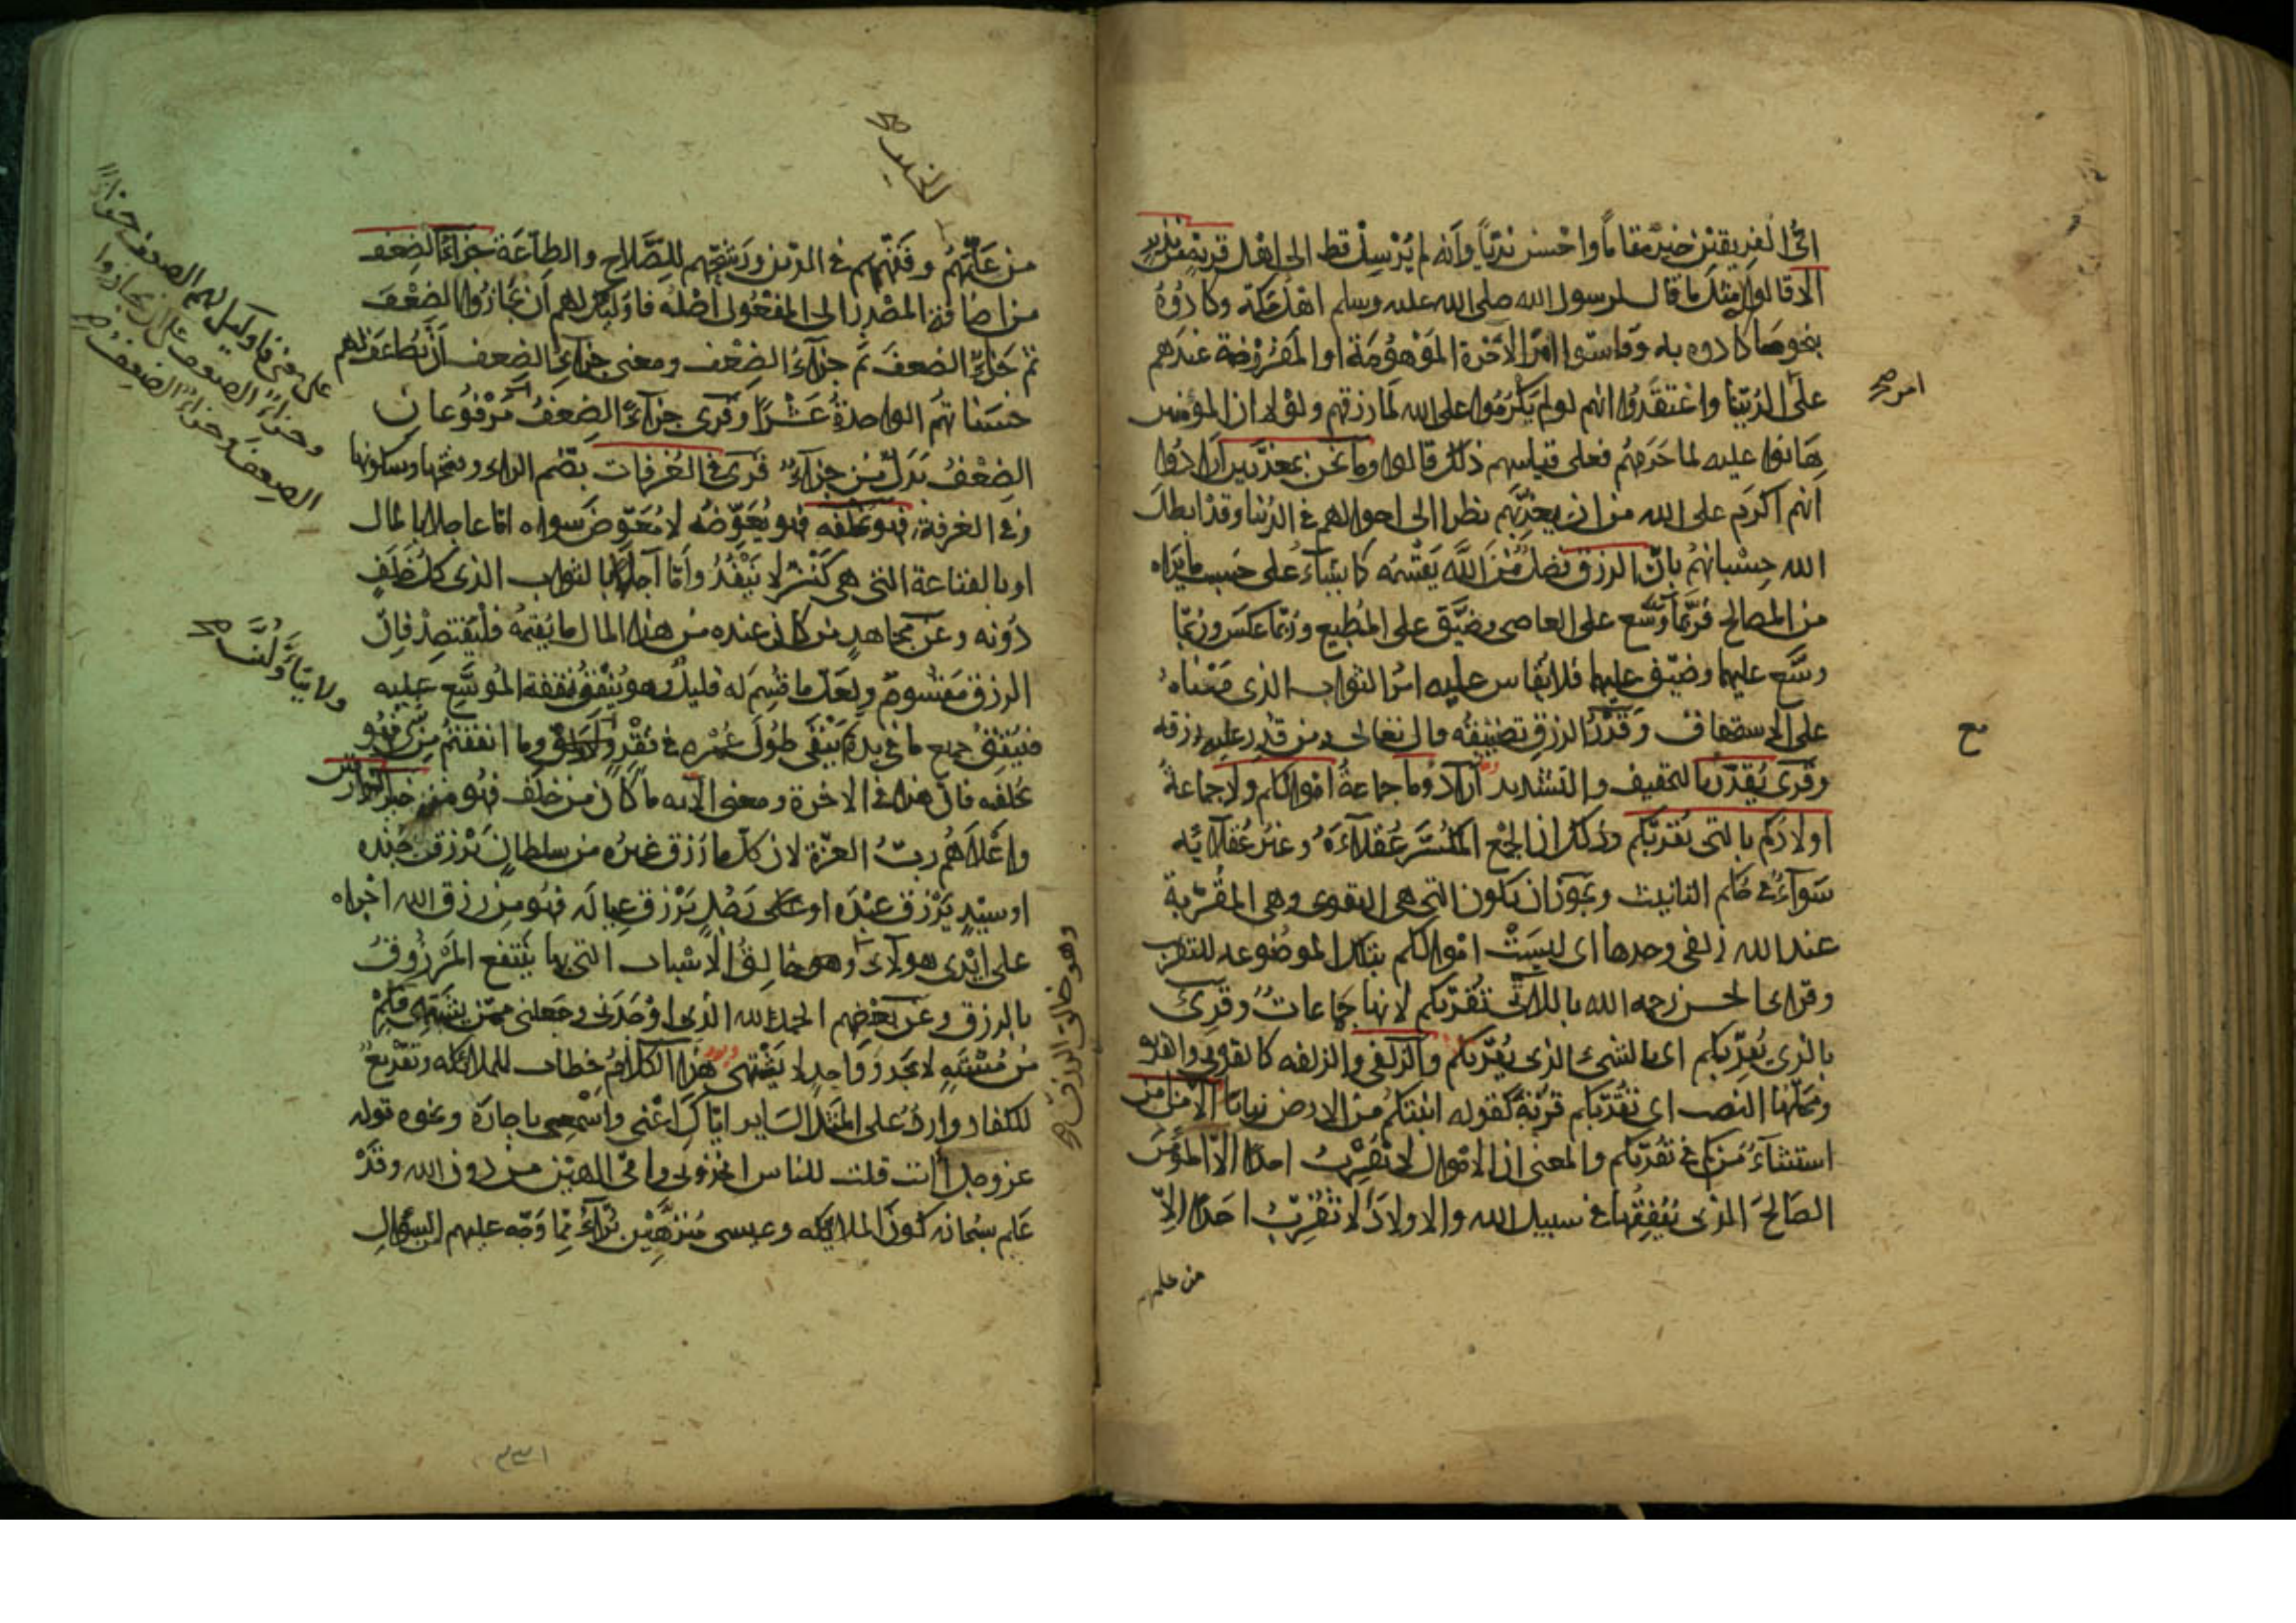 اىّ الفريقين خير مقاماً واحسن نديّاً وانه لم يُرسِل قط الى اهل قرية من نذير
الا قالوا مثل ما قال لرسول الله صلى الله عليه وسلم اهل مكة وكادُوهُ
بنحو ما كادوه به وقاسوا امر الآخرة الموهومة او المفروضة عندهم
امر صح
على الدنيا واعتقدوا انهم لو لم يكرموا على الله لما رزقهم ولولا ان المؤمنين
هانوا عليه لما حرمهم فعلى قياسهم ذلك قالوا وما نحن بمعذبين ارادوا
انهم اكرم على الله من ان يعذبهم نظرا الى احوالهم في الدنيا وقد ابطل
الله حسبانهم بانّ الرزق فضل من الله يقسمه كما يشاء على حسب ما يراه
من المصالح فربّما وسّع على العاصى وضيّق على المطيع وربّما عكس وربّما
وسّع عليهما وضيّق عليهما فلا يُقاس عليه امر الثواب الذى مبناه
على الاستحقاق وقدر الرزق تضييقه قال تعالى ومن قُدِر عليه رزقه
وقرى يقدر بالتخفيف والتشديد اراد وما جماعة اموالكم ولا جماعة
اولادكم بالتى تقربكم وذلك ان الجمع المكسّر عُقلاءه وغير عقلائه
سوآءٌ في حكم التانيث ويجوز ان تكون التى هى التقوى وهى المقرّبة
عند الله زلفى وحدها اى ليست اموالكم بتلك الموضوعه للتقريب
وقرا الحسن رحمه الله باللاتى تقربكم لانها جماعات وقرى
بالذى يقربكم اى بالشىء الذى يقربكم والزلفى والزلفه كالقربى والقربه
ومحلّها النصب اى تقربكم قربة كقوله انبتكم من الارض نباتا الا من امن
استثناءٌ من كم في تقربكم والمعنى ان الاموال لا تقرب احدا الا المؤمن
الصالح الذى ينفقها في سبيل الله والاولاد لا تقرب احدا الا
من علمهم
الخير صح
من علّمهم وفقّههم في الدين ورشّحهم للصّلاح والطاعة جزاءُ الضعف
من اضافة المصدر الى المفعول اصله فاولئك لهم ان يجازوا الضعف
ثم جزاءٌ الضعفَ ثم جزاءُ الضعف ومعنى جزاء الضعف ان تضاعف لهم
حسناتهم الواحدة عشرا وقرى جزاءٌ الضعفُ مرفوعان
الضعفُ بدل من جزاء قرى في الغرفات بضم الراء وفتحها وسكونها
وفي الغرفة فهو يخلفه فهو يعوّضه لا معوّض سواه امّا عاجلا بالمال
او بالقناعة التى هى كنز لا ينفد وامّا آجلا بالثواب الذى كل خلف
دونه وعن مجاهد من كان عنده من هذا المال ما يقيمه فليقتصد فان
الرزق مقسوم ولعلّ ما قسم له قليل وهو ينفق نفقة الموسّع عليه
فينفق جميع ما في يده ثم يبقى طول عمره في فقر وما انفقتم من شئ فهو
يخلفه فان هذا في الاخرة ومعنى الآية ما كان من خلف فهو منه خير الرازقين
واعلاهم ربّ العزّة لان كل ما رزق غيره من سلطان يرزق جنده
او سيّد يرزق عبده او رجل يرزق عياله فهو من رزق الله اجراه
على ايدى هولاء وهو خالق الاسباب التى بها ينتفع المرزوق
بالرزق وعن بعضهم الحمد لله الذى اوجدنى وجعلنى ممّن يشتهى فكم
من مشتهٍ لا يجد وواجد لا يشتهى هذا الكلام خطاب للملائكه وتقريع
للكفار وارد على المثل السائر اياك اعنى واسمعى يا جارة ونحوه قوله
عز وجل أانت قلت للناس اتخذونى وامّى الهين من دون الله وقد
علم سبحانه كون الملائكه وعيسى منزّهين بُرآء ممّا وجّه عليهم السؤال
على معنى فاوليك لهم الضعف جزاءً
وجزاءً الضعف على ان يجازوا
الضعفَ وجزاءُ الضعف صح
ولا يتاولنّ صح
وهو خالق الرزق صح